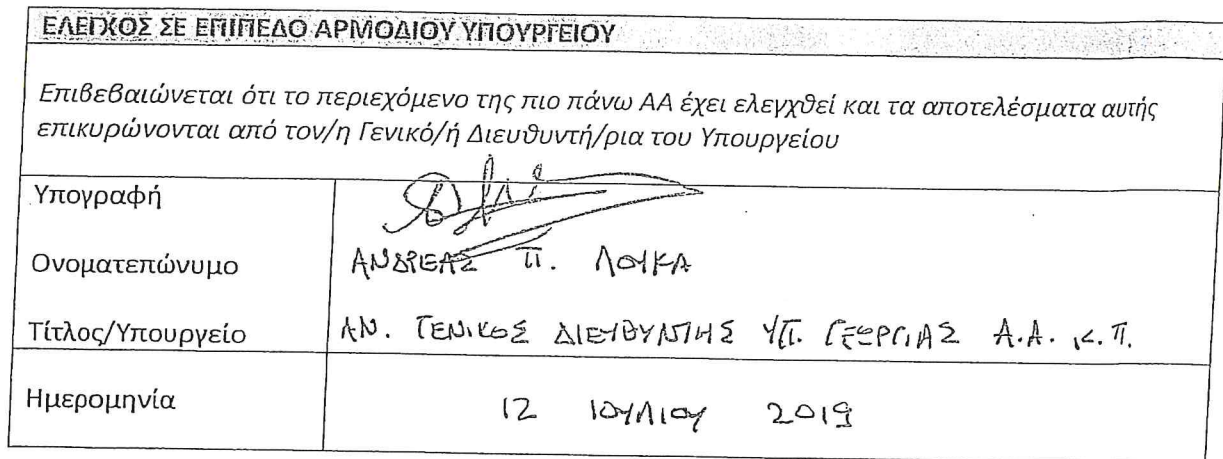 ΕΛΕΓΧΟΣ ΣΕ ΕΠΙΠΕΔΟ ΑΡΜΟΔΙΟΥ ΥΠΟΥΡΓΕΙΟΥ
Επιβεβαιώνεται ότι το περιεχόμενο της πιο πάνω ΑΑ έχει ελεγχθεί και τα αποτελέσματα αυτής
επικυρώνονται από τον/η Γενικό/ή Διευθυντή/ρια του Υπουργείου
Υπογραφή
Ονοματεπώνυμο ΑΝΔΡΕΑΣ Π. ΛΟΥΚΑ
Τίτλος/Υπουργείο ΑΝ. ΓΕΝΙΚΟΣ ΔΙΕΥΘΥΝΤΗΣ ΥΠ. ΓΕΩΡΓΙΑΣ Α.Α. Κ.Π.
Ημερομηνία 12 ΙΟΥΛΙΟΥ 2019